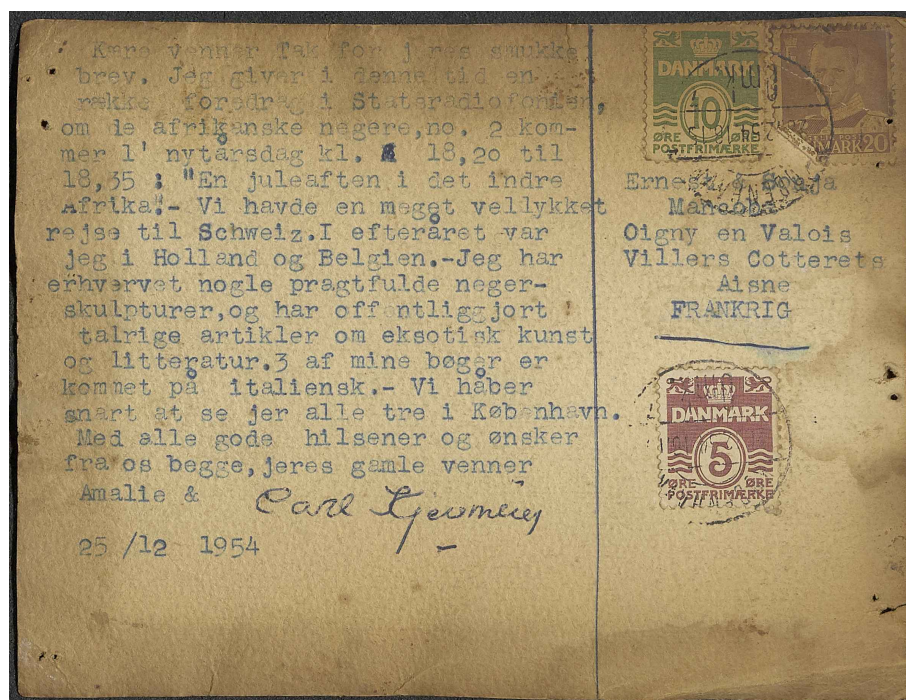 Kære venner Tak for jeres smukke
brev. Jeg giver i denne tid en
række foredrag i Statsradiofonien,
om de afrikanske negere, no. 2 kom-
mer 1' nytårsdag kl. 18,20 til
18,35 : "En juleaften i det indre
Afrika".- Vi havde en meget vellykket
rejse til Schweiz. I efteråret var
jeg i Holland og Belgien.-Jeg har
erhvervet nogle pragtfulde neger-
skulpturer, og har offentliggjort
talrige artikler om eksotisk kunst
og litteratur. 3 af mine bøger er
kommet på italiensk.- Vi håber
snart at se jer alle tre i København.
Med alle gode hilsener og ønsker
fra os begge, jeres gamle venner
Amalie & Carl Kjersmeier
25 /12 1954
DANMARK
10
ØRE ØRE
POSTFRIMÆRKE
DANMARK 20
Ernest & Sonja
Mancoba
Oigny en Valois
Villers Cotterets
Aisne
FRANKRIG
DANMARK
5
ØRE ØRE
POSTFRIMÆRKE